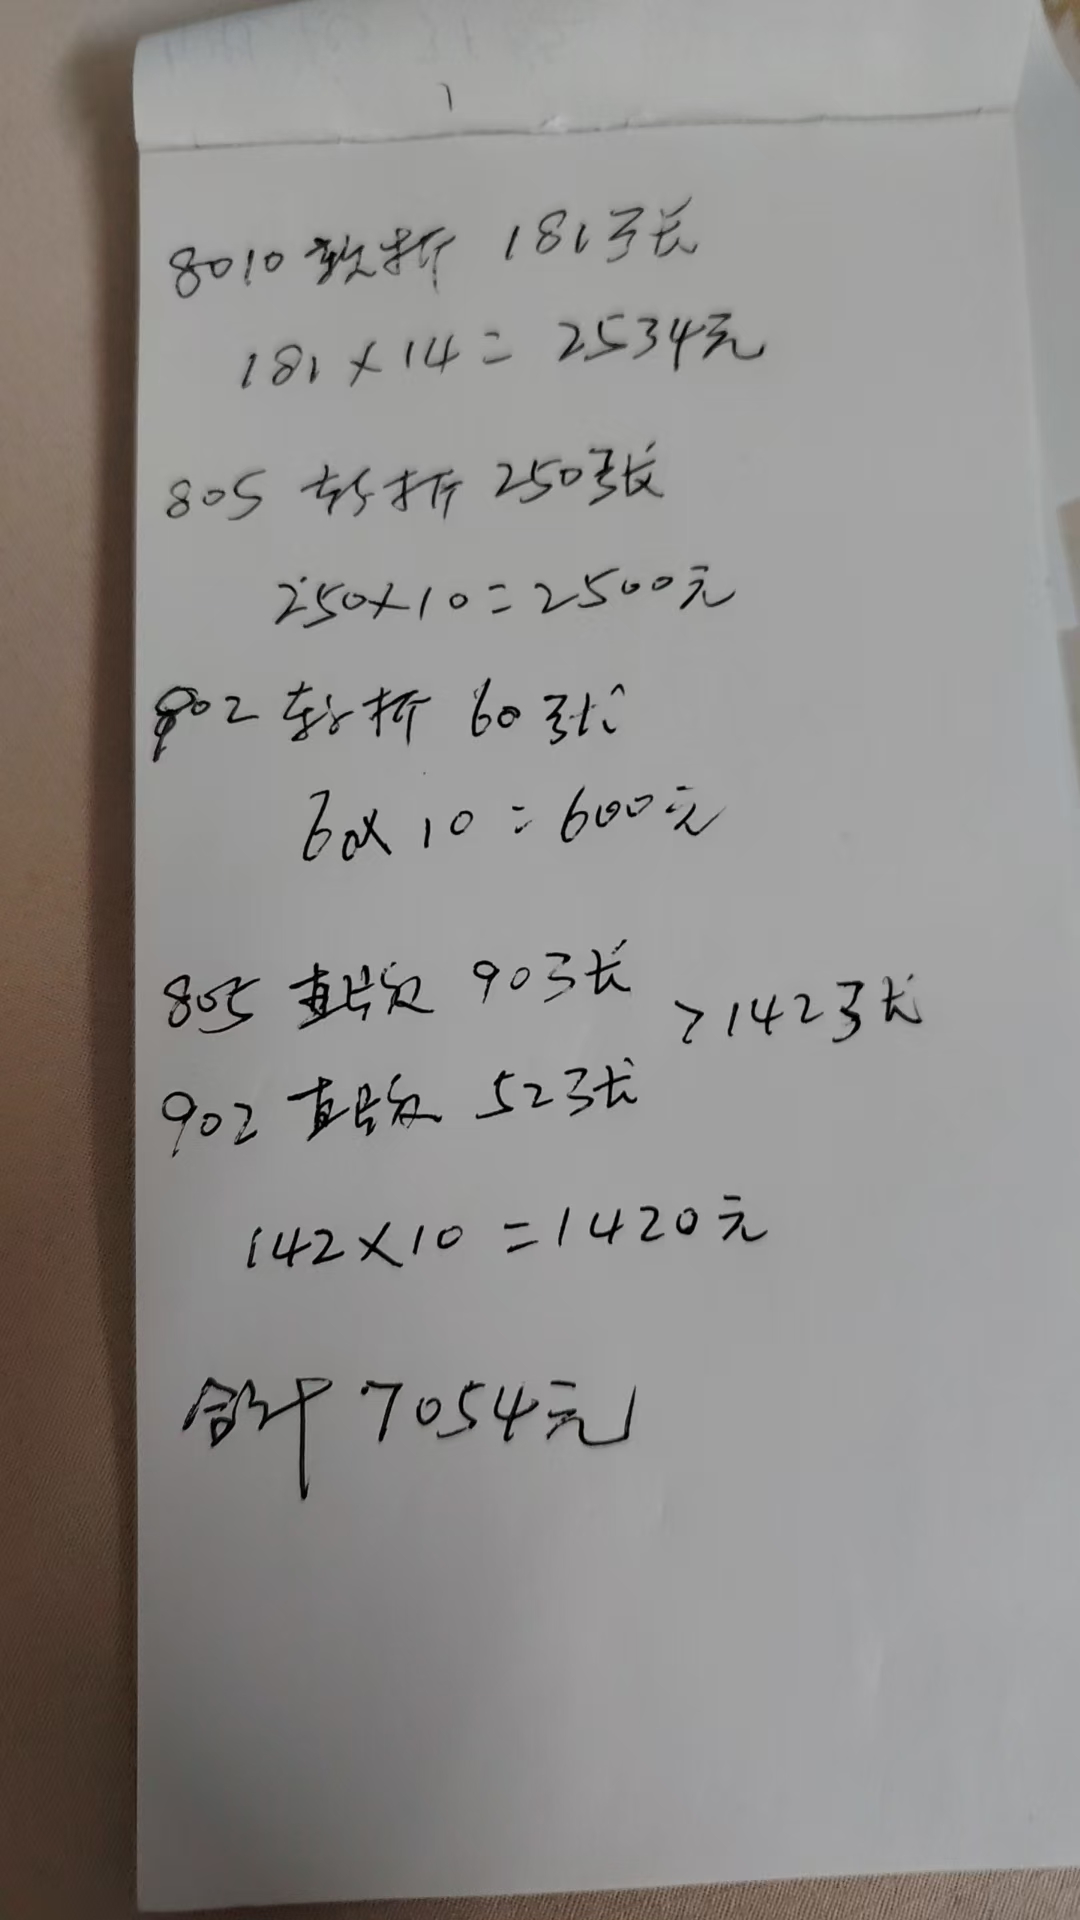 8010软折 181张
181×14=2534元
805 软折 250张
250×10=2500元
902 软折 60张
60×10=600元
805 直 90张
>142张
902 直 52张
142×10=1420元
合计 7054元